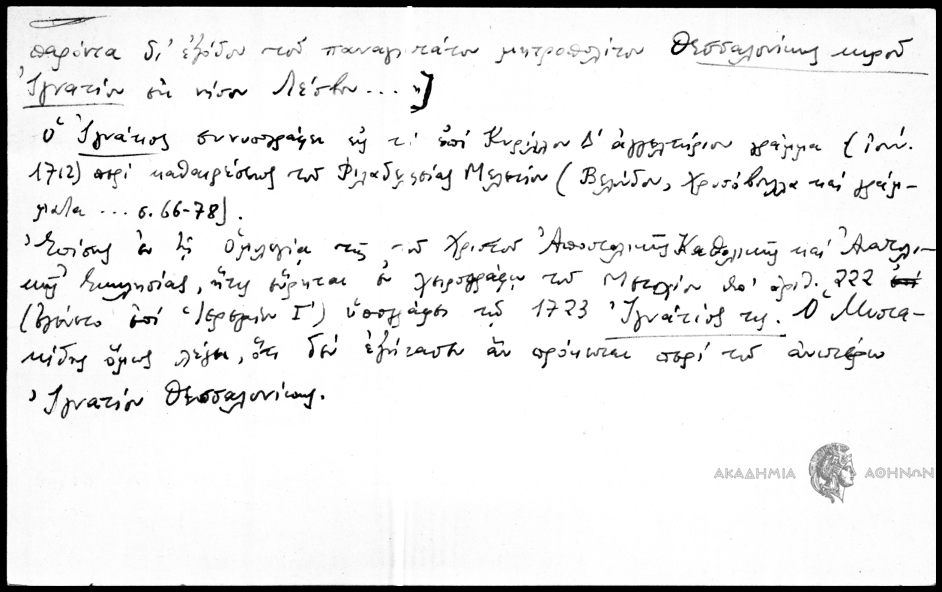 παρόντα δι' ἐξόδου τοῦ παναγιωτάτου μητροπολίτου Θεσσαλονίκης κυροῦ
Ἰγνατίου εἰς νῆσον Λέσβον... "]
Ὁ Ἰγνάτιος συνυπογράφει εἰς τὸ ἐπὶ Κυρίλλου Δ' ἀγγελτήριον γράμμα (Ἰούν.
1712) περὶ καθαιρέσεως τοῦ Φιλαδελφείας Μελετίου (Βελούδου, Χρυσόβουλλα καὶ γράμ-
ματα ... σ. 66-78).
Ἐπίσης ἐν τῇ Ὁμολογίᾳ τῆς τοῦ Χριστοῦ Ἀποστολικῆς Καθολικῆς καὶ Ἀνατολι-
κῆς Ἐκκλησίας, ἥτις εὕρηται ἐν χειρογράφῳ τοῦ Μετοχίου ὑπ' ἀριθ. 222
(ἐγένετο ἐπὶ Ἱερεμίου Γ') ὑπογράφει τῷ 1723 Ἰγνάτιός τις. Ὁ Μυστα-
κίδης ὅμως λέγει, ὅτι δὲν ἐξήτασεν ἂν πρόκειται περὶ τοῦ ἀνωτέρω
Ἰγνατίου Θεσσαλονίκης.
ΑΚΑΔΗΜΙΑ ΑΘΗΝΩΝ